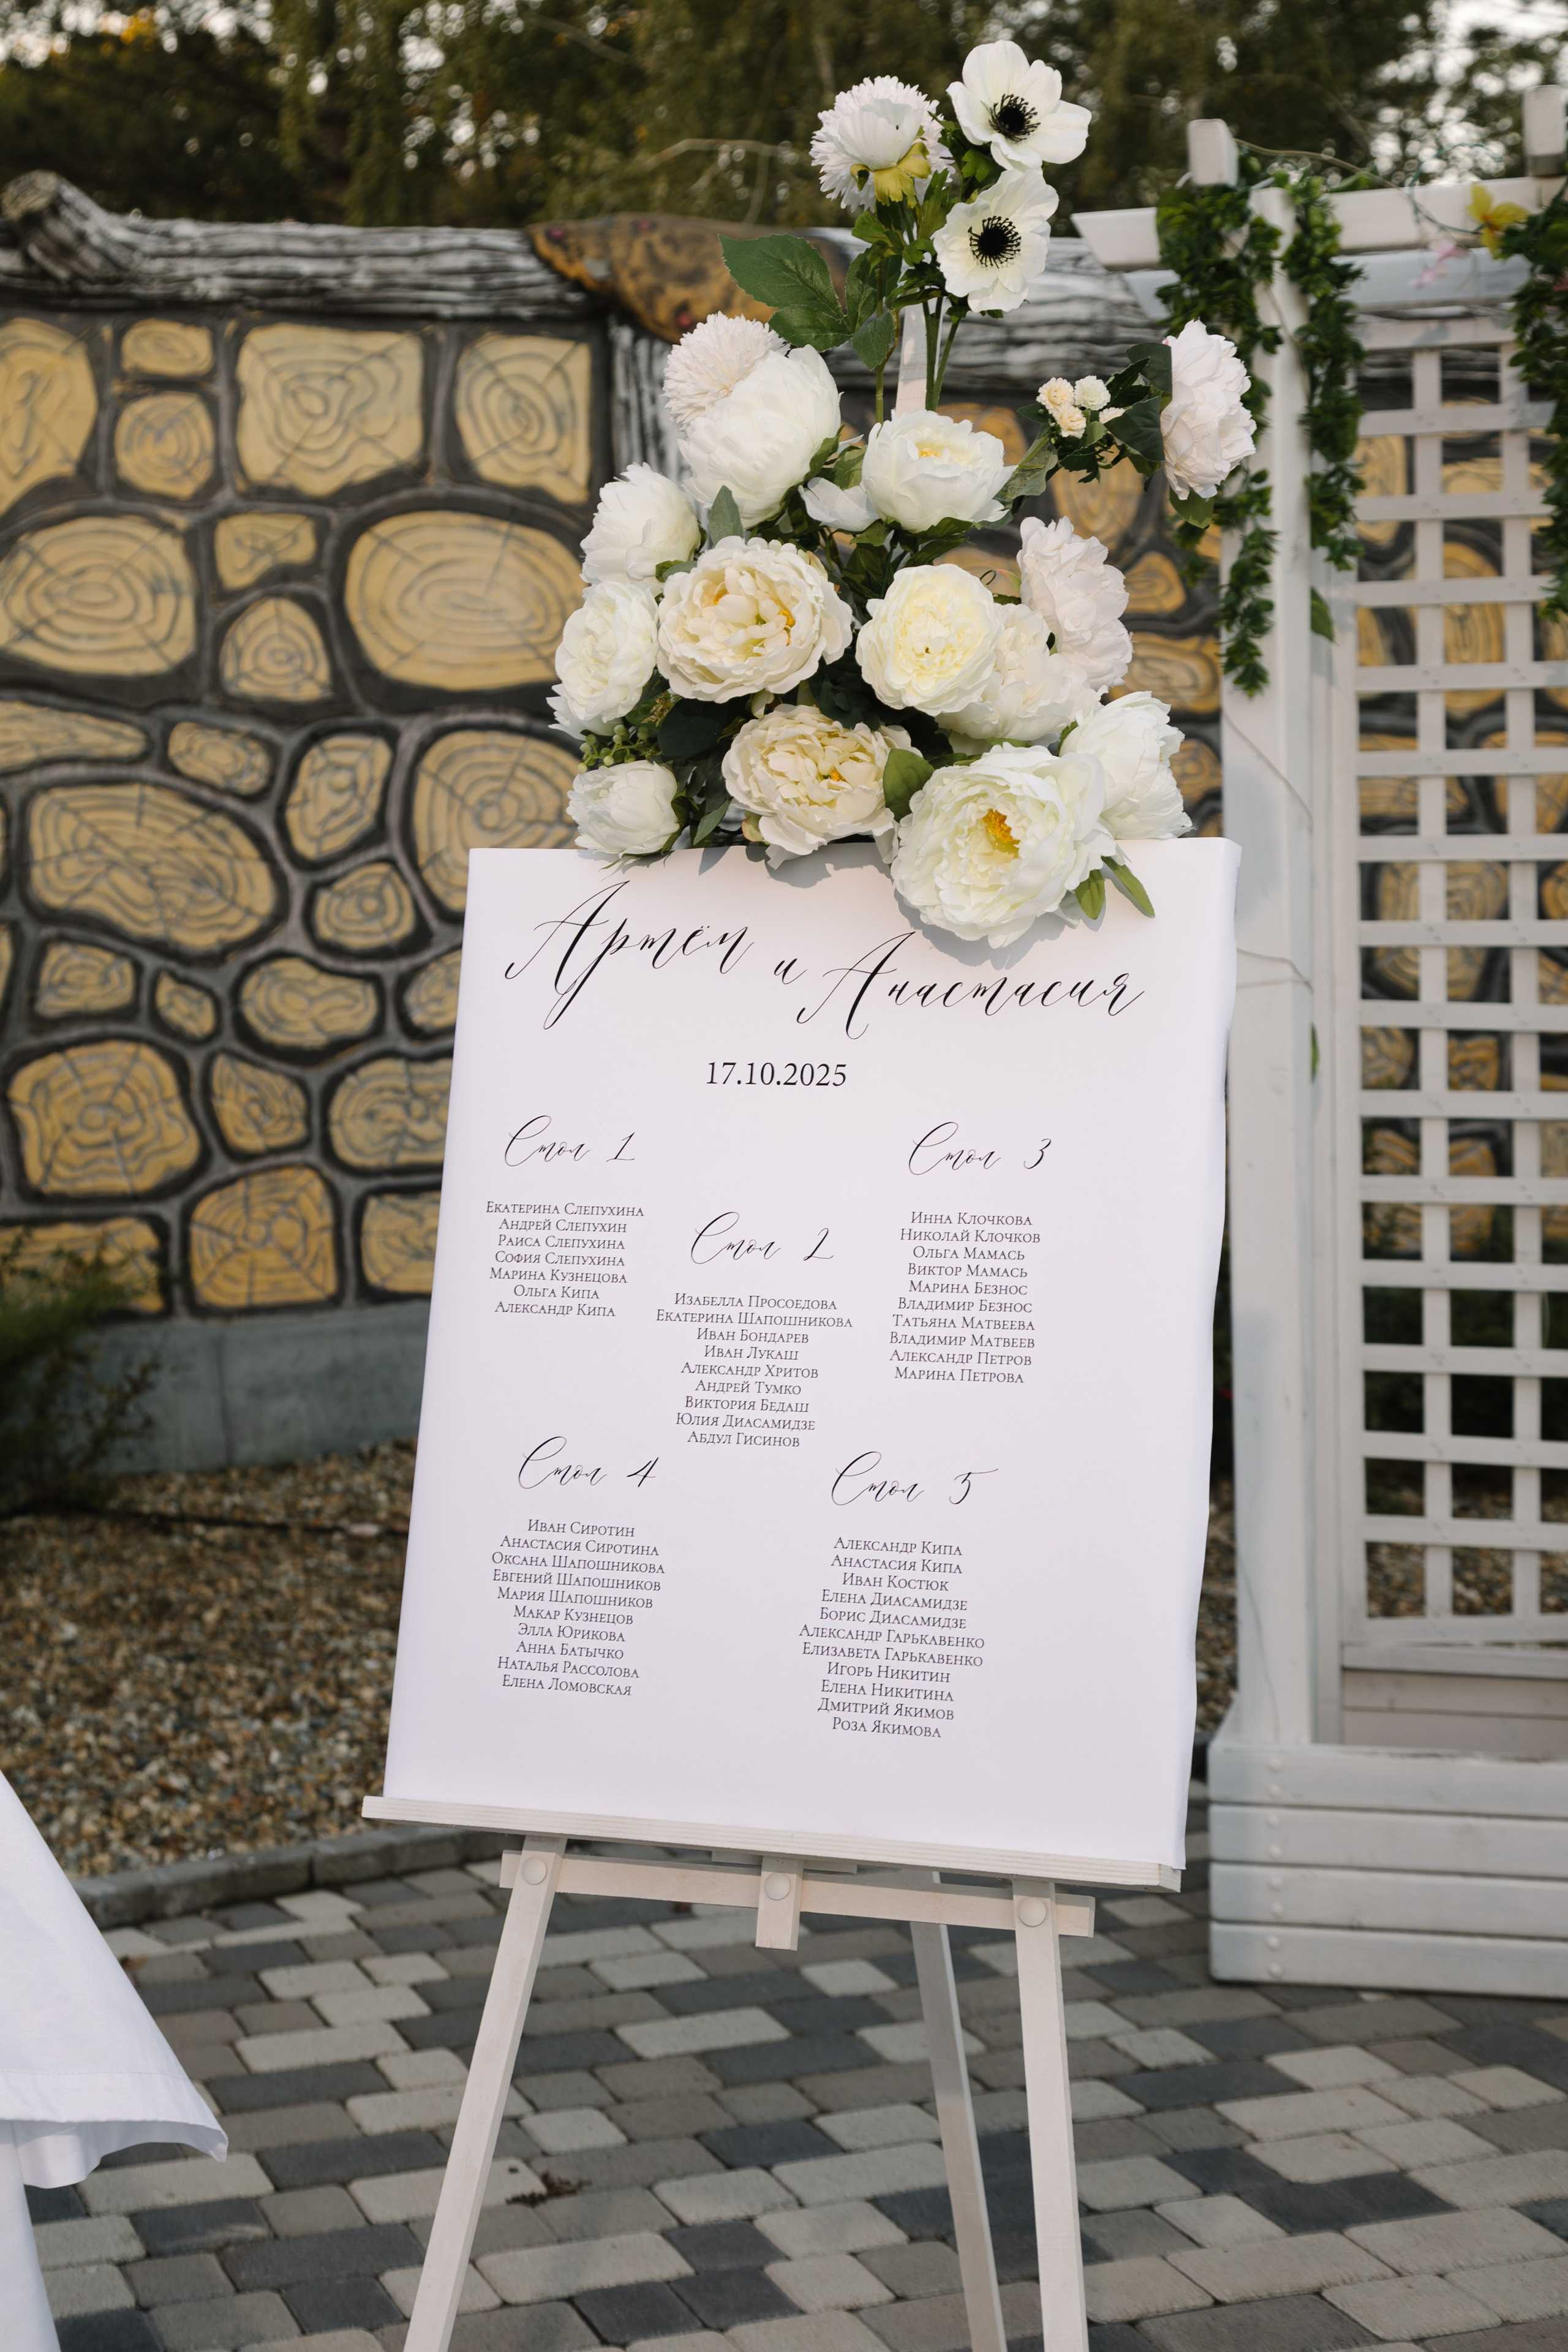 Артём и Анастасия
17.10.2025
Стол 1
Екатерина Слепухина
Андрей Слепухин
Раиса Слепухина
София Слепухина
Марина Кузнецова
Ольга Кипа
Александр Кипа
Стол 2
Изабелла Просоедова
Екатерина Шапошникова
Иван Бондарев
Иван Лукаш
Александр Хритов
Андрей Тумко
Виктория Бедаш
Юлия Диасамидзе
Абдул Гисинов
Стол 3
Инна Клочкова
Николай Клочков
Ольга Мамась
Виктор Мамась
Марина Безнос
Владимир Безнос
Татьяна Матвеева
Владимир Матвеев
Александр Петров
Марина Петрова
Стол 4
Иван Сиротин
Анастасия Сиротина
Оксана Шапошникова
Евгений Шапошников
Мария Шапошников
Макар Кузнецов
Элла Юрикова
Анна Батычко
Наталья Рассолова
Елена Ломовская
Стол 5
Александр Кипа
Анастасия Кипа
Иван Костюк
Елена Диасамидзе
Борис Диасамидзе
Александр Гарькавенко
Елизавета Гарькавенко
Игорь Никитин
Елена Никитина
Дмитрий Якимов
Роза Якимова